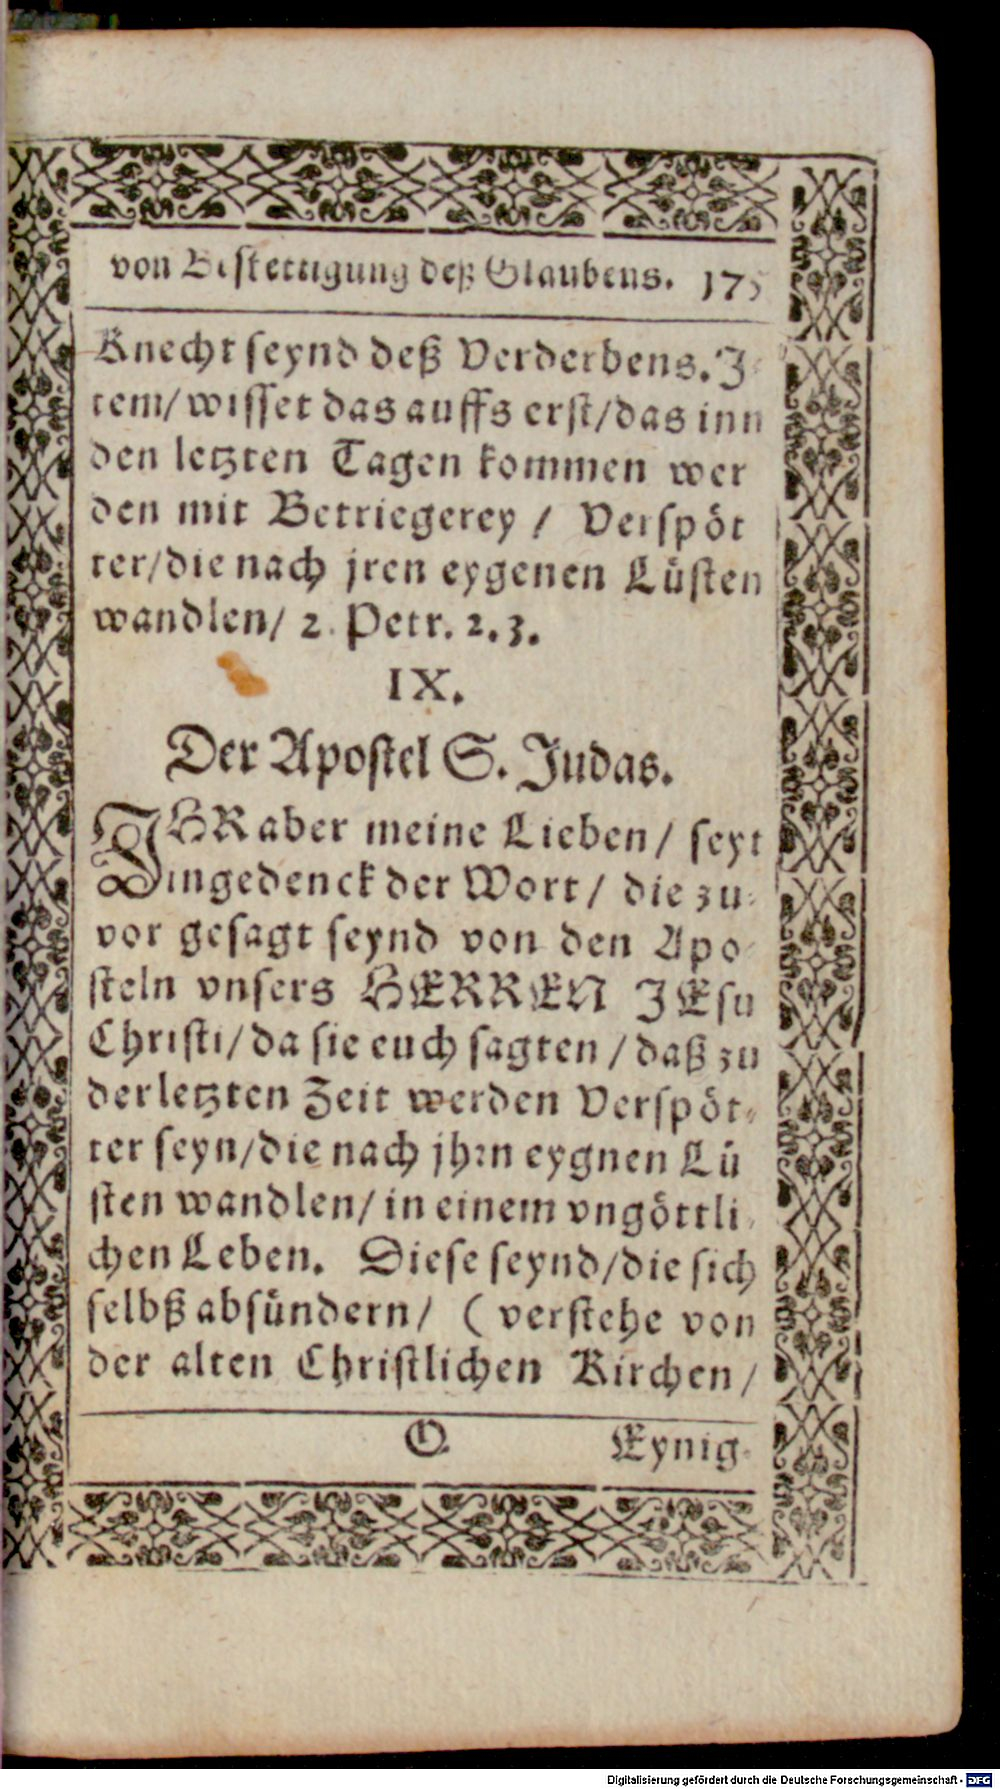 von Bestettigung deß Glaubens. 175
Knecht seynd deß Verderbens. J-
tem/ wisset das auffs erst/ das inn
den letzten Tagen kommen wer
den mit Betriegerey / Verspöt
ter/ die nach jren eygenen Lüsten
wandlen/ 2. Petr. 2. 3.
IX.
Der Apostel S. Judas.
JHR aber meine Lieben / seyt
ingedenck der Wort / die zu-
vor gesagt seynd von den Apo-
steln vnsers HERREN JEsu
Christi/ da sie euch sagten / daß zu
der letzten Zeit werden Verspöt-
ter seyn/ die nach jhrn eygnen Lü
sten wandlen/ in einem vngöttli-
chen Leben. Diese seynd/ die sich
selbß absündern/ ( verstehe von
der alten Christlichen Kirchen /
O Eynig-
Digitalisierung gefördert durch die Deutsche Forschungsgemeinschaft - DFG